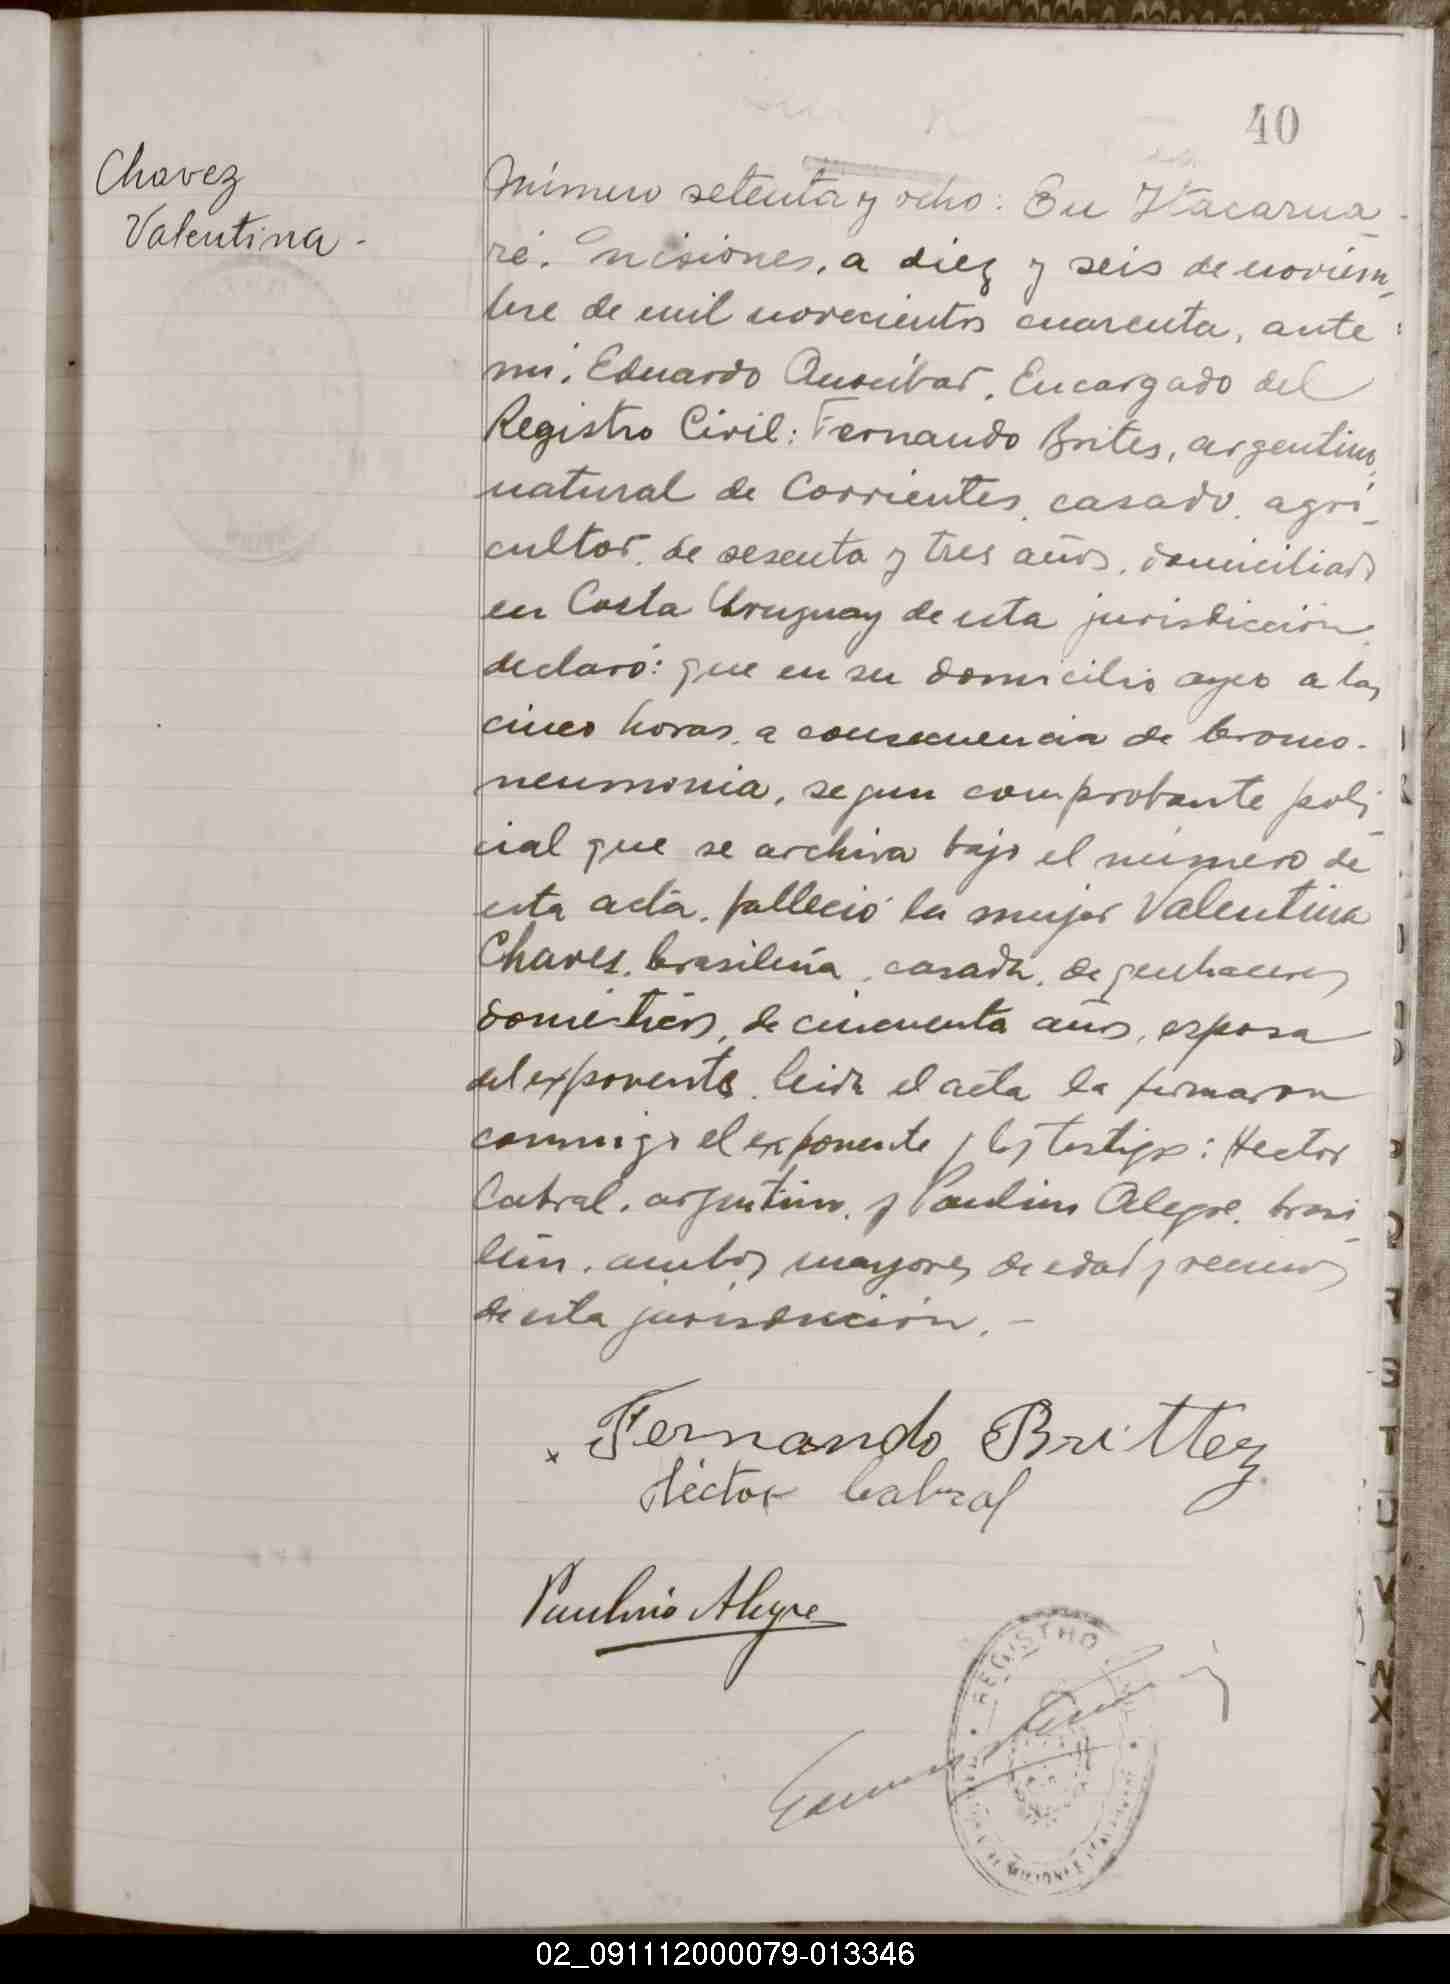 40
Chavez
Valentina -
Número setenta y ocho: En Itacarua-
ré. Misiones, a diez y seis de noviem-
bre de mil novecientos cuarenta, ante
mi, Eduardo Encargado del
Registro Civil: Fernando Brites, argentino,
natural de Corrientes, casado, agri-
cultor, de sesenta y tres años, domiciliado
en Costa Uruguay de esta jurisdicción,
declaró: que en su domicilio ayer a las
cinco horas, a consecuencia de bronco-
neumonia, segun comprobante poli-
cial que se archiva bajo el número de
esta acta, falleció la mujer Valentina
Chaves, brasileña, casada, de quehaceres
domésticos, de cincuenta años, esposa
del exponente. Leida el acta la firmaron
conmigo el exponente y los testigos: Hector
Cabral, argentino, y Paulino Alegre, brasi-
leño, ambos mayores de edad y vecinos
de esta jurisdicción. -
x Fernando Brittez
Héctor Cabral
Paulino Alegre
REGISTRO
R
S
T
U
V
X
Y
Z
02_091112000079-013346